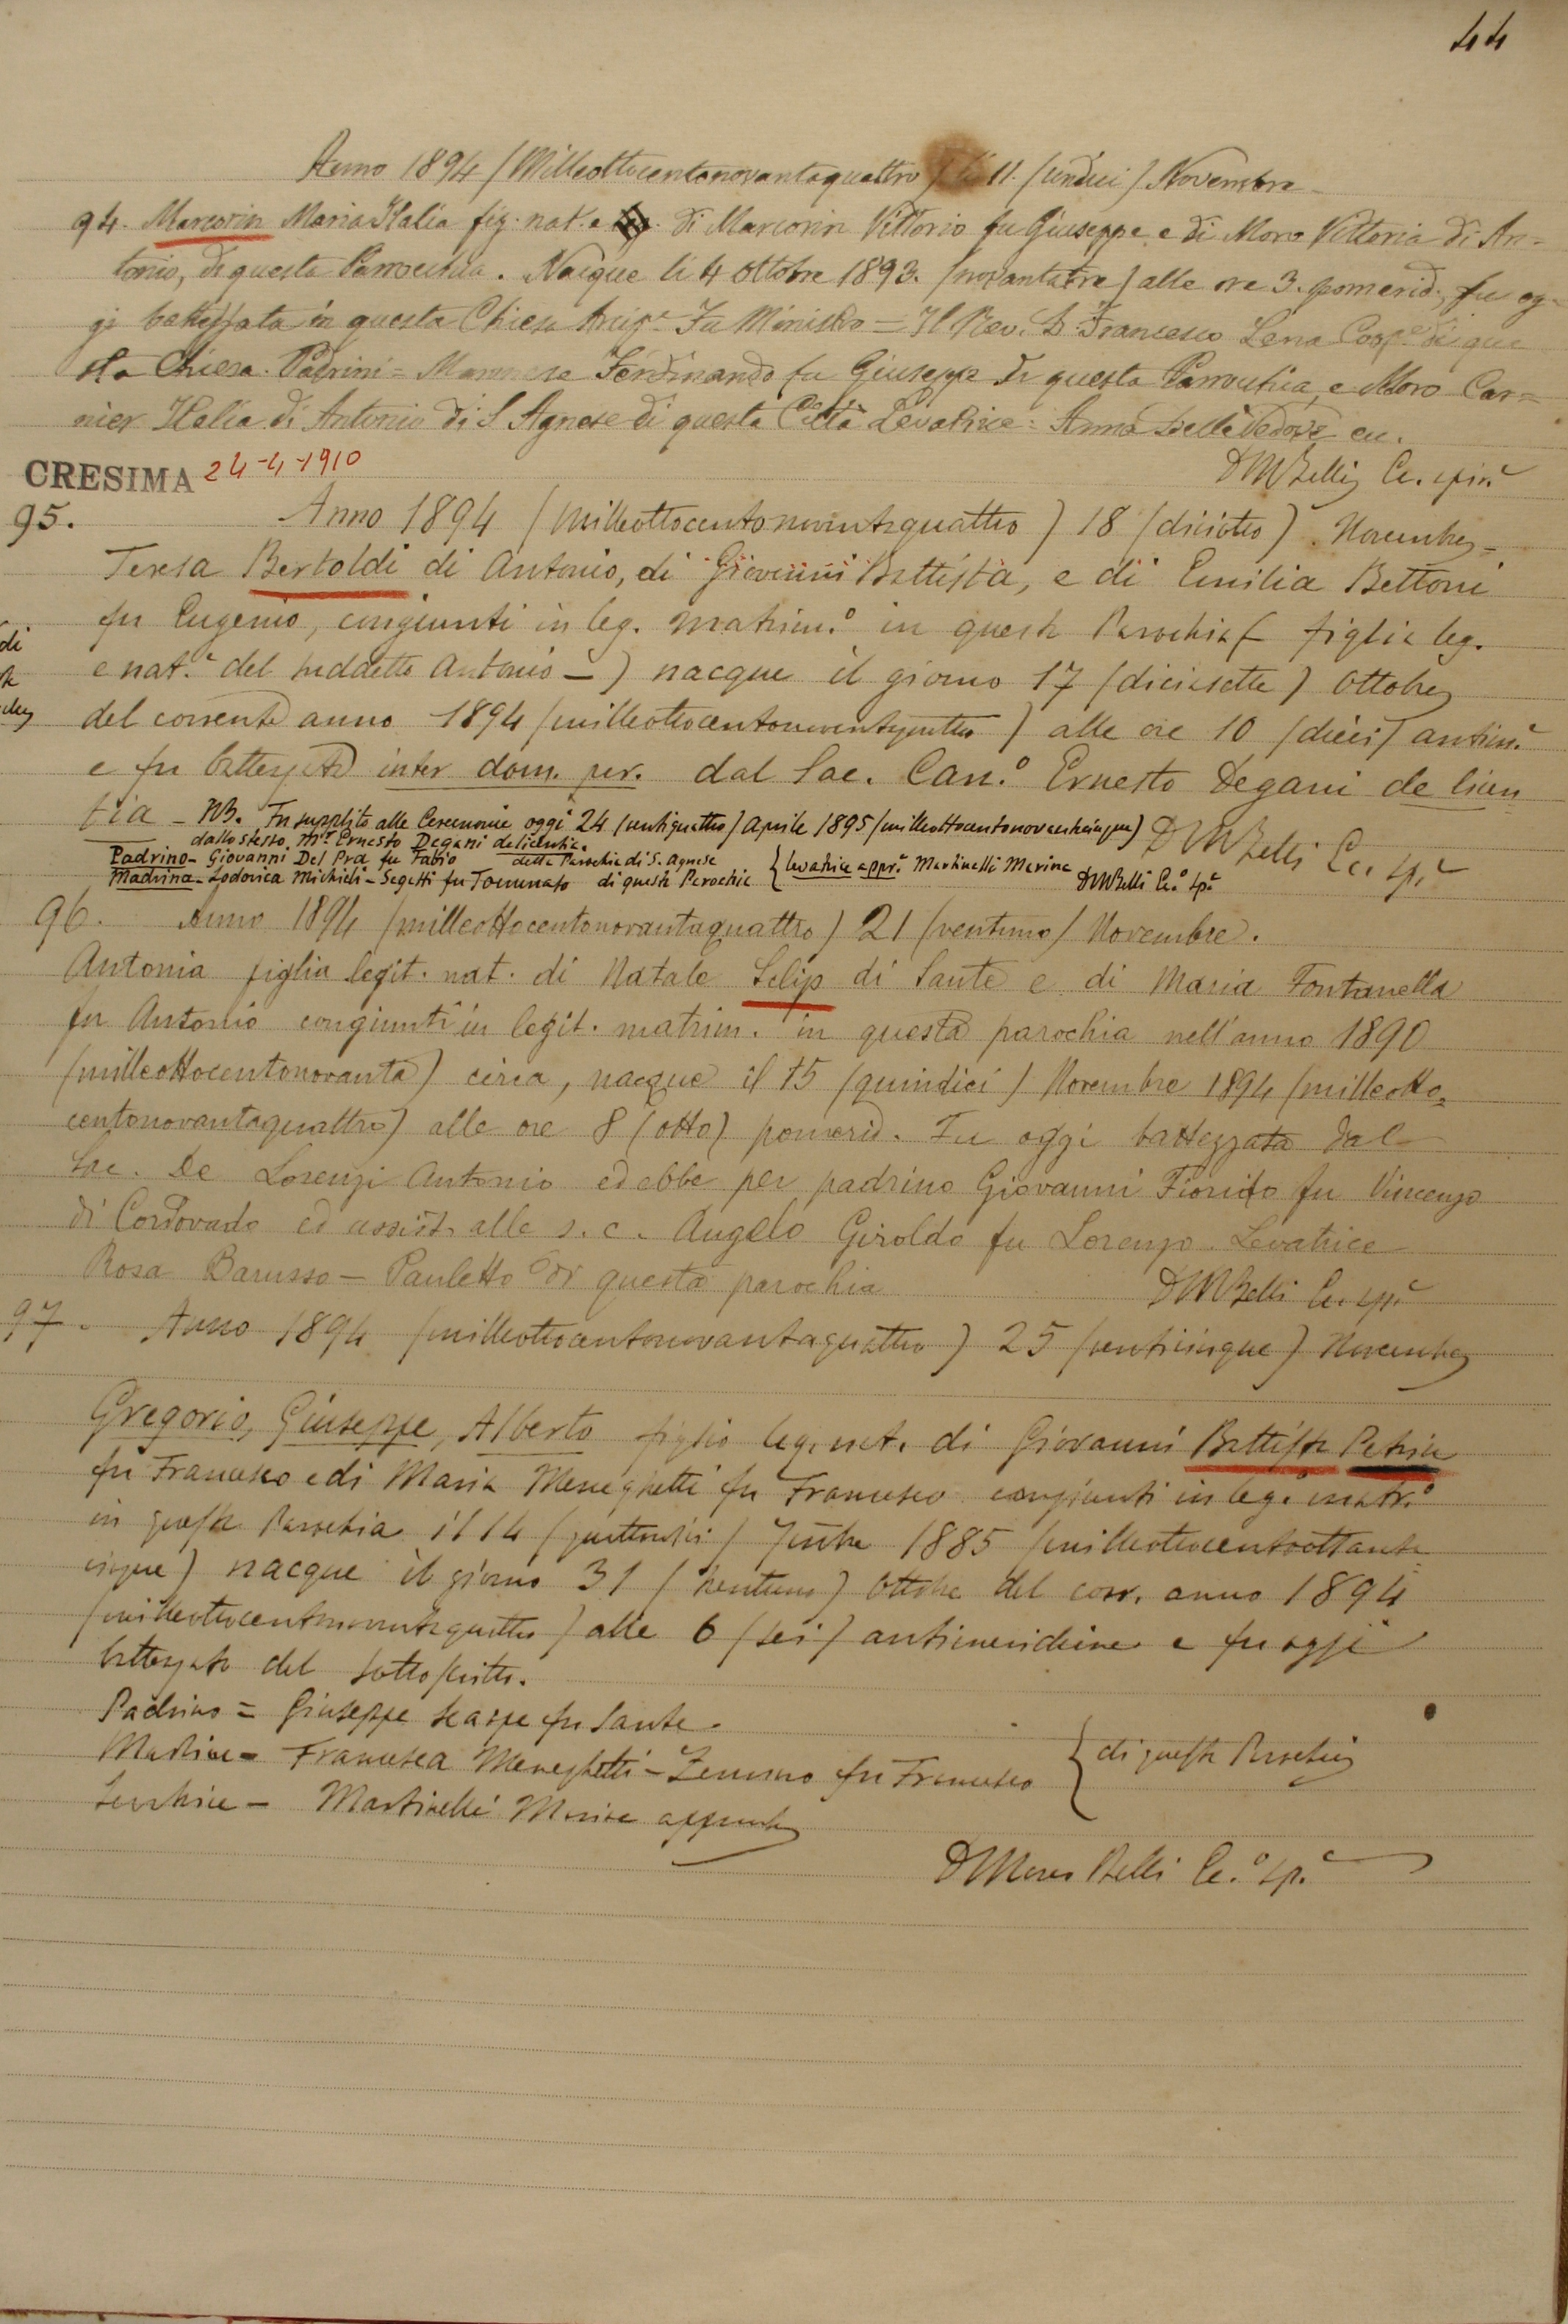 44
Anno 1894 (Milleottocentonovantaquattro) li 11. (undici) Novembre
94. Marcorin Maria Italia fig. nat. e di Marcorin Vittorio fu Giuseppe e di Moro Vittoria di An=
tonio, di questa Parrocchia. Nacque li 4 ottobre 1893. (novantatre) alle ore 3. pomerid. fu og=
gi battezzata in questa Chiesa Fu Ministro = Il Rev. D. Francesco Lena Coop.e di que
sta Chiesa. Padrini = Ferdinando fu Giuseppe di questa Parrochia, e Moro Car=
nier Italia di Antonio di S. Agnese di questa Città Levatrice: Anna Delle Vedove
CRESIMA 24-4-1910
DMZelli
95.
Anno 1894 (milleottocentonovantaquattro) 18 (diciotto) Novembre
Teresa Bertoldi di Antonio, di Giovanni Battista, e di Emilia Bettoni
fu Eugenio, congiunti in leg. matrim.o in questa Parochia (figlia leg.
di
e nat.e del suddetto Antonio -) nacque il giorno 17 (diciasette) Ottobre
del corrente anno 1894 (milleottocentonovantaquattro) alle ore 10 (dieci) antim.e
e fu battezzata inter dom. per. dal Sac. Can.o Ernesto Degani de licen
tia - NB. Fu supplito alle Ceremonie oggi 24 (ventiquattro) Aprile 1895 (milleottocentonovantacinque)
dallo stesso M.r Ernesto Degani de licentia.
Padrino - Giovanni Del Pra fu Fabio della Parochia di S. Agnese
Madrina - Lodovica Michieli - Segatti fu Tommaso di questa Parochia { levatrice appr.a Martinelli Marina
96. Anno 1894 (milleottocentonovantaquattro) 21 (ventuno) Novembre.
Antonia figlia legit. nat. di Natale Selip di Sante e di Maria Fontanella
fu Antonio congiunti in legit. matrim. in questa parochia nell'anno 1890
(milleottocentonovanta) circa, nacque il 15 (quindici) Novembre 1894 (milleotto=
centonovantaquattro) alle ore 8 (otto) pomerid. Fu oggi battezzata dal
Sac. De Lorenzi Antonio ed ebbe per padrino Giovanni Fiorido fu Vincenzo
di Cordovado ed assist. alle s. c. Angelo Giroldo fu Lorenzo. Levatrice
Rosa Barusso - Pauletto di questa parochia
97. Anno 1894 (milleottocentonovantaquattro) 25 (venticinque) Novembre
Gregorio, Giuseppe, Alberto figlio leg. nat. di Giovanni Battista Petrin
fu Francesco e di Maria Meneghetti fu Francesco congiunti in leg. matr.o
in questa Parochia il 14 (quattordici) 1885 (milleottocentoottanta
cinque) nacque il giorno 31 (trentuno) Ottobre del corr. anno 1894
(milleottocentonovantaquattro) alle 6 (sei) antimeridiane e fu oggi
battezzato dal sottoscritto.
Padrino = Giuseppe Scarpe fu Sante.
Madrina - Francesca Meneghetti - fu Francesco { di questa Parochia
Levatrice - Martinelli Marina approvata